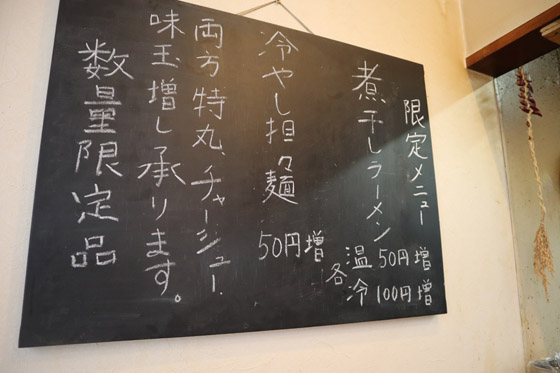 限定メニュー
煮干しラーメン
各
温 50円増
冷 100円増
冷やし担々麺
50円増
両方特丸、チャーシュー
味玉増し承ります。
数量限定品